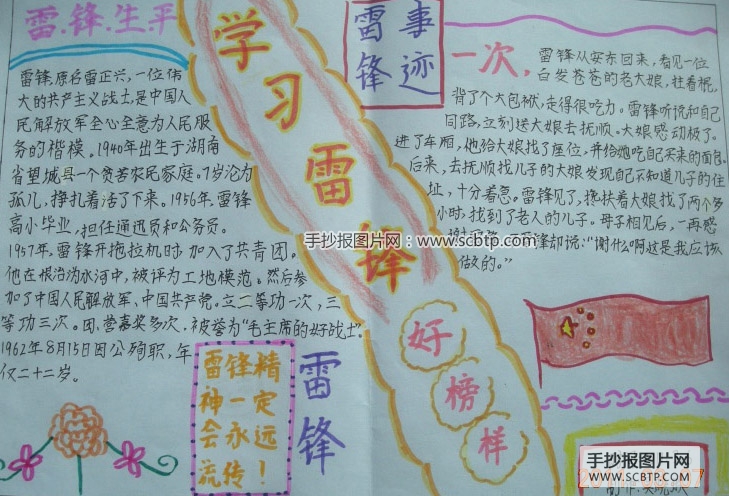 雷锋生平
雷锋,原名雷正兴,一位伟
大的共产主义战士,是中国人
民解放军全心全意为人民服
务的楷模。1940年出生于湖南
省望城县一个贫苦农民家庭。7岁沦为
孤儿,挣扎着活了下来。1956年,雷锋
高小毕业,担任通迅员和公务员。
1957年,雷锋开拖拉机时加入了共青团。
他在根治沩水河中,被评为工地模范。然后参
加了中国人民解放军、中国共产党。立二等功一次,三
等功三次。团、营嘉奖多次。被誉为“毛主席的好战士”
1962年8月15日因公殉职,年
仅二十二岁。
雷锋精
神一定
会永远
流传!
雷锋
学习雷锋
好榜样
雷锋
事迹
一次,
雷锋从安东回来,看见一位
白发苍苍的老大娘,拄着棍,
背了个大包袱,走得很吃力。雷锋听说和自己
同路,立刻送大娘去抚顺。大娘感动极了。
进了车厢,他给大娘找了座位,并给她吃自己买来的面包。
后来,去抚顺找儿子的大娘发现自己不知道儿子的住
址,十分着急。雷锋见了,搀扶着大娘找了两个多
小时,找到了老人的儿子。母子相见后,一再感
锋却说:“谢什么啊这是我应该
做的。”
手抄报图片网
www.scbtp.com
手抄报图片网
WWW.SCBTP.COM